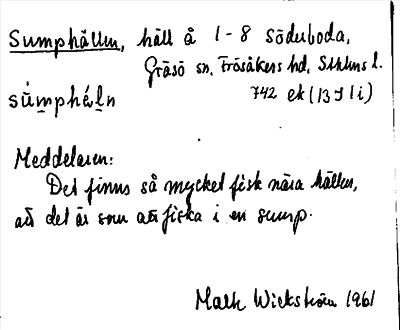 Sumphällen, häll å 1-8 Söderboda,
Gräsö sn, Frösåkers hd, Sthlms l.
súmphä́ḷn 742 ek (13 I 1 i)
Meddelaren:
Det finns så mycket fisk nära hällen,
att det är som att fiska i en sump.
Wickström 1961